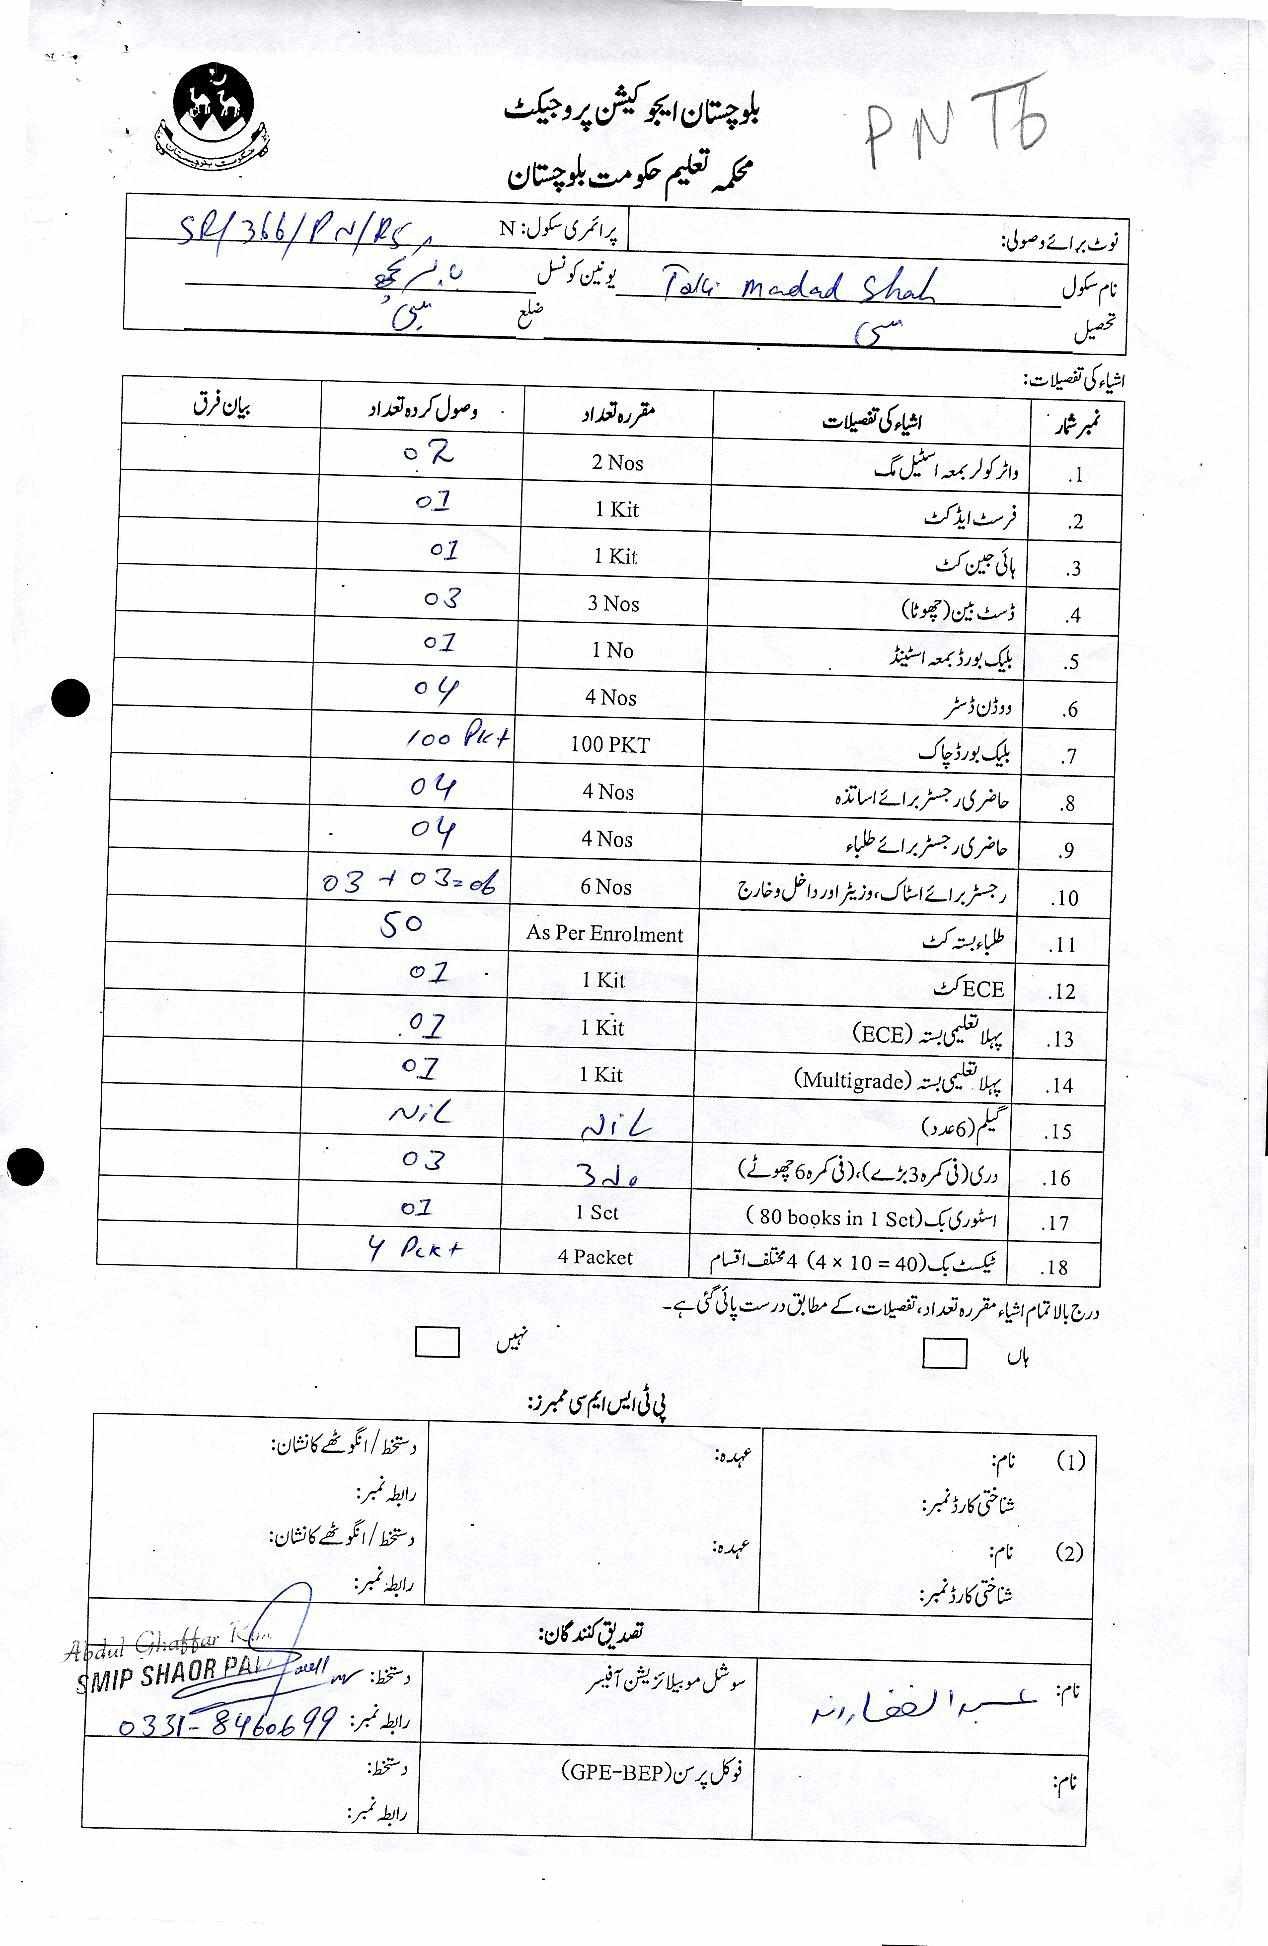 بلوچستان ایجوکیشن پروجیکٹ
PNT6
محکمہ تعلیم حکومت بلوچستان
حکومت بلوچستان
نوٹ برائے وصولی: پرائمری سکول: N SR/366/PN/RS
نام سکول Talli Madad Shah یونین کونسل
تحصیل سبی ضلع سبی
اشیاء کی تفصیلات:
نمبر شمار اشیاء کی تفصیلات مقررہ تعداد وصول کردہ تعداد بیان فرق
1. واٹر کولر بمعہ اسٹیل مگ 2 Nos 02
2. فرسٹ ایڈ کٹ 1 Kit 01
3. ہائی جین کٹ 1 Kit 01
4. ڈسٹ بین (چھوٹا) 3 Nos 03
5. بلیک بورڈ بمعہ اسٹینڈ 1 No 01
6. ووڈن ڈسٹر 4 Nos 04
7. بلیک بورڈ چاک 100 PKT 100 Pkt
8. حاضری رجسٹر برائے اساتذہ 4 Nos 04
9. حاضری رجسٹر برائے طلباء 4 Nos 04
10. رجسٹر برائے اسٹاک، وزیٹر اور داخل و خارج 6 Nos 03 + 03 = 06
11. طلباء بستہ کٹ As Per Enrolment 50
12. ECE کٹ 1 Kit 01
13. پہلا تعلیمی بستہ (ECE) 1 Kit 01
14. پہلا تعلیمی بستہ (Multigrade) 1 Kit 01
15. گلیم (6 عدد) NiL NiL
16. دری (فی کمرہ 3 بڑے)، (فی کمرہ 6 چھوٹے) 3 No 03
17. اسٹوری بک (80 books in 1 Set) 1 Set 01
18. ٹیکسٹ بک (4 × 10 = 40) 4 مختلف اقسام 4 Packet 4 Pckt
درج بالا تمام اشیاء مقررہ تعداد، تفصیلات، کے مطابق درست پائی گئی ہے۔
ہاں نہیں
پی ٹی ایس ایم سی ممبرز:
(1) نام: عہدہ: دستخط / انگوٹھے کا نشان:
شناختی کارڈ نمبر: رابطہ نمبر:
(2) نام: عہدہ: دستخط / انگوٹھے کا نشان:
شناختی کارڈ نمبر: رابطہ نمبر:
تصدیق کنندگان:
Abdul Ghaffar
SMIP SHAOR
نام: عبدالغفار سوشل موبیلائزیشن آفیسر دستخط:
رابطہ نمبر: 0331-8460699
نام: فوکل پرسن (GPE-BEP) دستخط:
رابطہ نمبر: